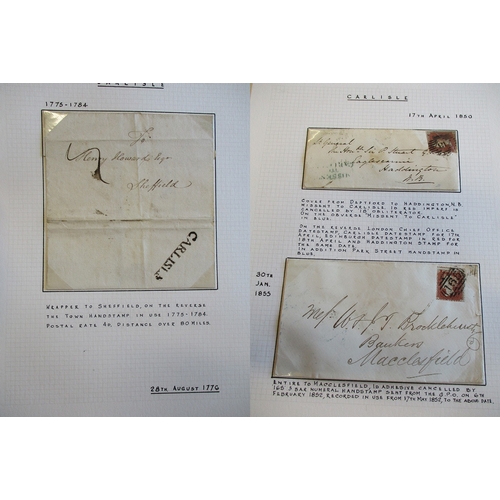 CARLISLE
1775-1784
To
Henry Howard Esqr
Sheffield
CARLISLE
WRAPPER TO SHEFFIELD, ON THE REVERSE
THE TOWN HANDSTAMP IN USE 1775-1784.
POSTAL RATE 4D, DISTANCE OVER 80 MILES.
28TH AUGUST 1776
CARLISLE
17TH APRIL 1850
General
Stuart
Haddington
N.B.
COVER FROM DEPTFORD TO HADDINGTON, N.B.
MISSENT TO CARLISLE, 1D RED IMPERF IS
CANCELLED BY "18" OBLITERATOR.
ON THE OBVERSE "MISSENT TO CARLISLE"
IN BLUE.
ON THE REVERSE LONDON CHIEF OFFICE
DATESTAMP, CARLISLE DATESTAMP FOR 17TH
APRIL, EDINBURGH DATESTAMP IN RED FOR
18TH APRIL AND HADDINGTON STAMP FOR
THE SAME DATE.
IN ADDITION PARK STREET HANDSTAMP IN
BLUE.
30TH
JAN.
1855
Messrs W. & J. Brocklehurst
Bankers
Macclesfield
ENTIRE TO MACCLESFIELD, 1D ADHESIVE CANCELLED BY
165 3 BAR NUMERAL HANDSTAMP SENT FROM THE G.P.O. ON 6TH
FEBRUARY 1852, RECORDED IN USE FROM 17TH MAY 1852, TO THE ABOVE DATE.